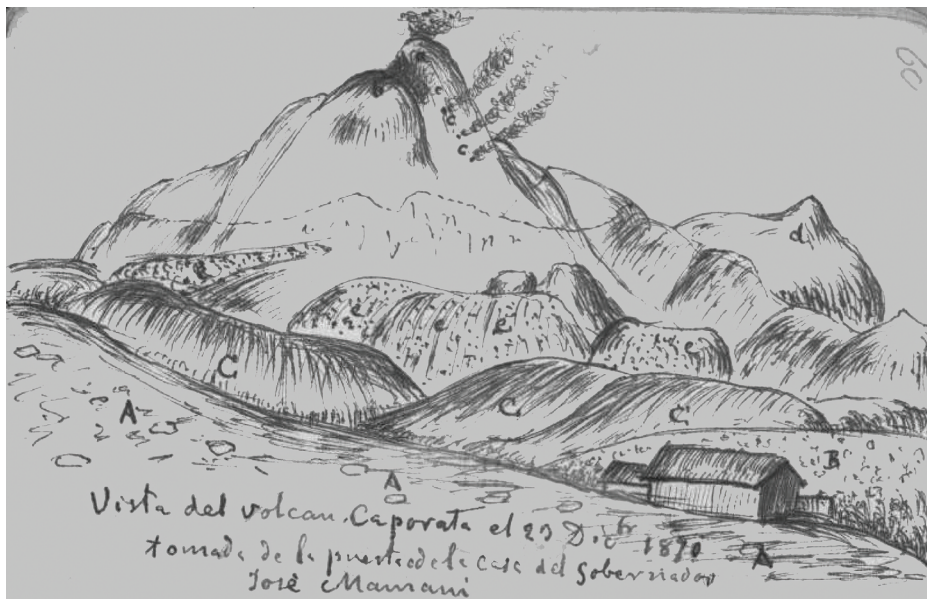 60
b
c
c
c
d
e
e
e
e
e
C
C
C
A
B
A
A
Vista del volcan Caporata el 23 Dicbr 1870
tomada de la puerta de la casa del Gobernador
José Mamani